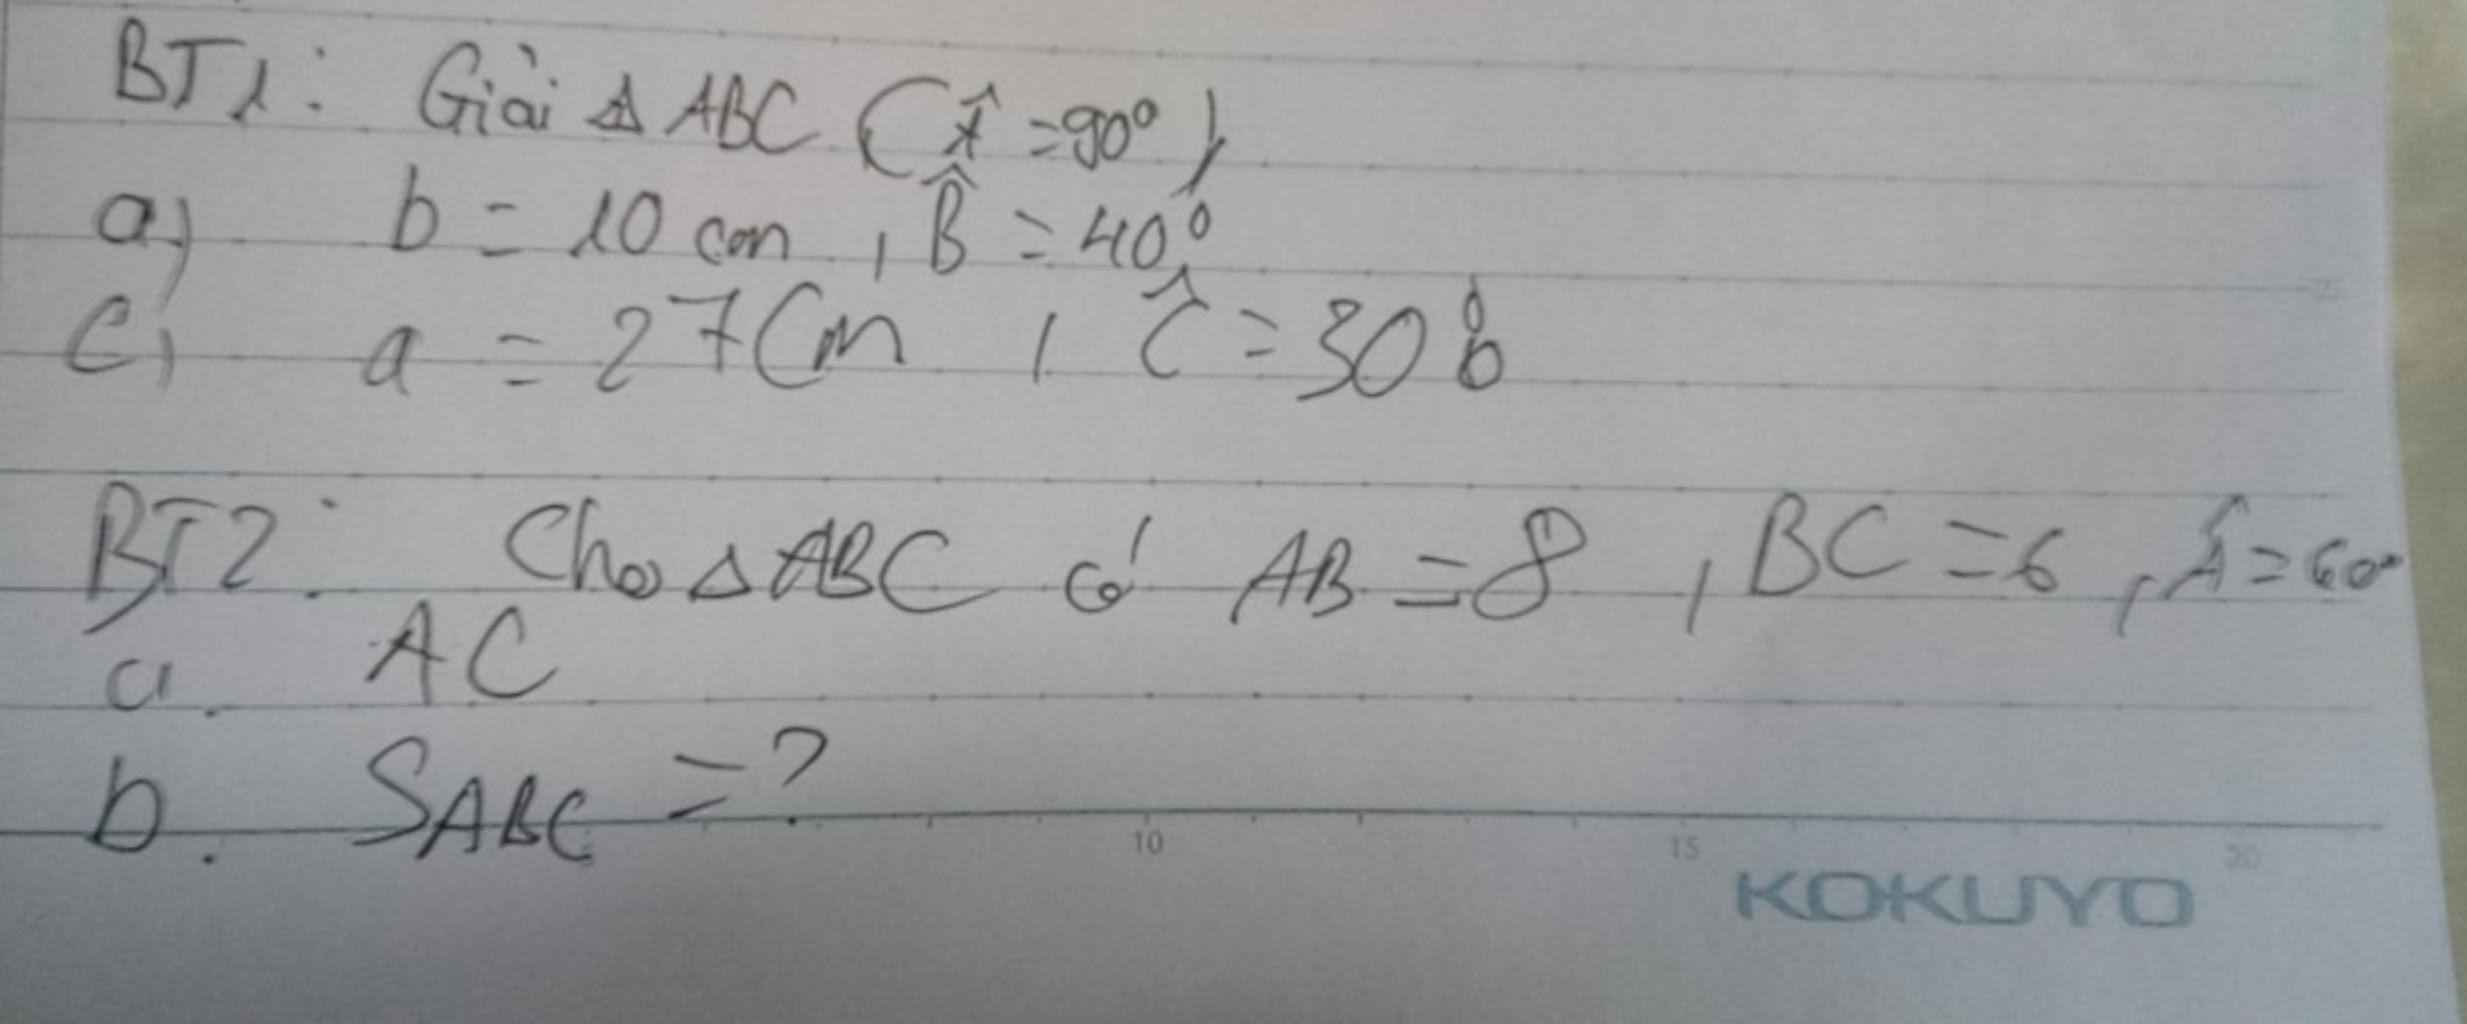 BT1: Giải Δ ABC (Â = 90⁰)
a) b = 10 cm, B̂ = 40⁰
c) a = 27 Cm, Ĉ = 30⁰
BT2: Cho Δ ABC có AB = 8, BC = 6, Â = 60⁰
a. AC
b. SABC = ?
10 15 20
KOKUYO